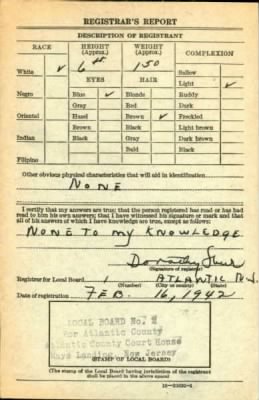 REGISTRAR'S REPORT
DESCRIPTION OF REGISTRANT
RACE HEIGHT (Approx.) WEIGHT (Approx.) COMPLEXION
6 150
White ✓ Sallow
EYES HAIR Light ✓
Negro Blue ✓ Blonde Ruddy
Gray Red Dark
Oriental Hazel Brown ✓ Freckled
Brown Black Light brown
Indian Black Gray Dark brown
Bald Black
Filipino
Other obvious physical characteristics that will aid in identification
NONE
I certify that my answers are true; that the person registered has read or has had
read to him his own answers; that I have witnessed his signature or mark and that
all of his answers of which I have knowledge are true, except as follows:
NONE TO MY KNOWLEDGE
Dorothy
(Signature of registrar)
Registrar for Local Board 1 ATLANTIC N.J.
(Number) (City or county) (State)
Date of registration FEB. 16, 1942
LOCAL BOARD No.
for Atlantic County
Atlantic County Court House
Mays Landing, New Jersey
(STAMP OF LOCAL BOARD)
(The stamp of the Local Board having jurisdiction of the registrant
shall be placed in the above space)